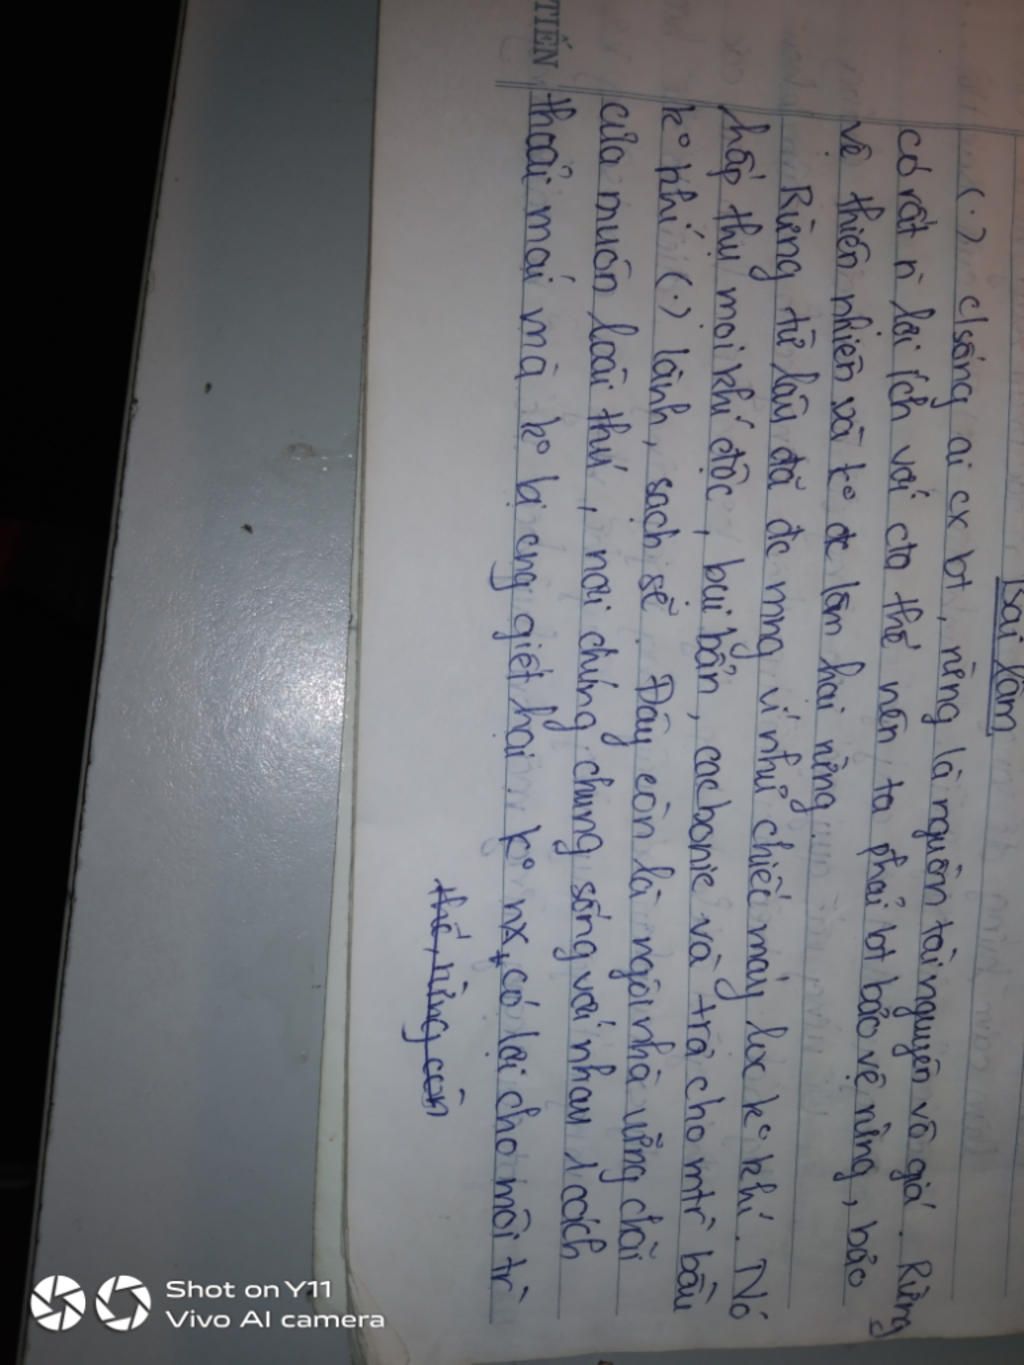 Bài làm
(.) c/sống ai cx bt, rừng là nguồn tài nguyên vô giá. Rừng
có rất n` lợi ích với cta thế nên ta phải bt bảo vệ rừng, bảo
vệ thiên nhiên và ko đc làm hại rừng
Rừng từ lâu đã đc mng ví như chiếc máy lọc ko khí. Nó
hấp thụ mọi khí độc, bụi bẩn, cacbonic và trả cho mtr` bầu
ko khí (.) lành, sạch sẽ. Đây còn là ngôi nhà vững chãi
của muôn loài thú, nơi chúng chung sống với nhau 1 cách
thoải mái mà ko bị cng giết hại ko nx, có lợi cho môi tr`
thế, rừng còn
TIẾN
Shot on Y11
Vivo AI camera